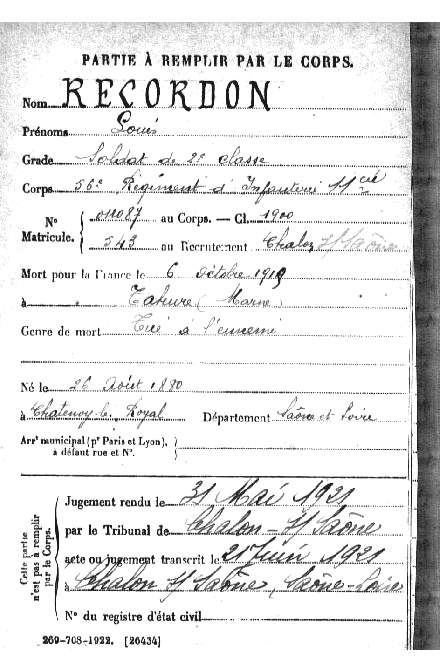 PARTIE À REMPLIR PAR LE CORPS.
Nom RECORDON
Prénoms Louis
Grade Soldat de 2e classe
Corps 56e Régiment d'Infanterie 11 Cie
N° Matricule. 011087 au Corps. — Cl. 1900
543 au Recrutement Chalon s/ Saône
Mort pour la France le 6 octobre 191
à Tahure (Marne)
Genre de mort Tué à l'ennemi
Né le 26 Août 1880
à Chatenoy-le-Royal Département Saône et Loire
Arrt municipal (pr Paris et Lyon),
à défaut rue et N°.
Cette partie
n'est pas à remplir
par le Corps.
Jugement rendu le 31 Mai 1921
par le Tribunal de Chalon-s/Saône
acte ou jugement transcrit le 21 Juin 1921
à Chalon s/ Saône, Saône-Loire
N° du registre d'état civil
269-708-1922. [26434]